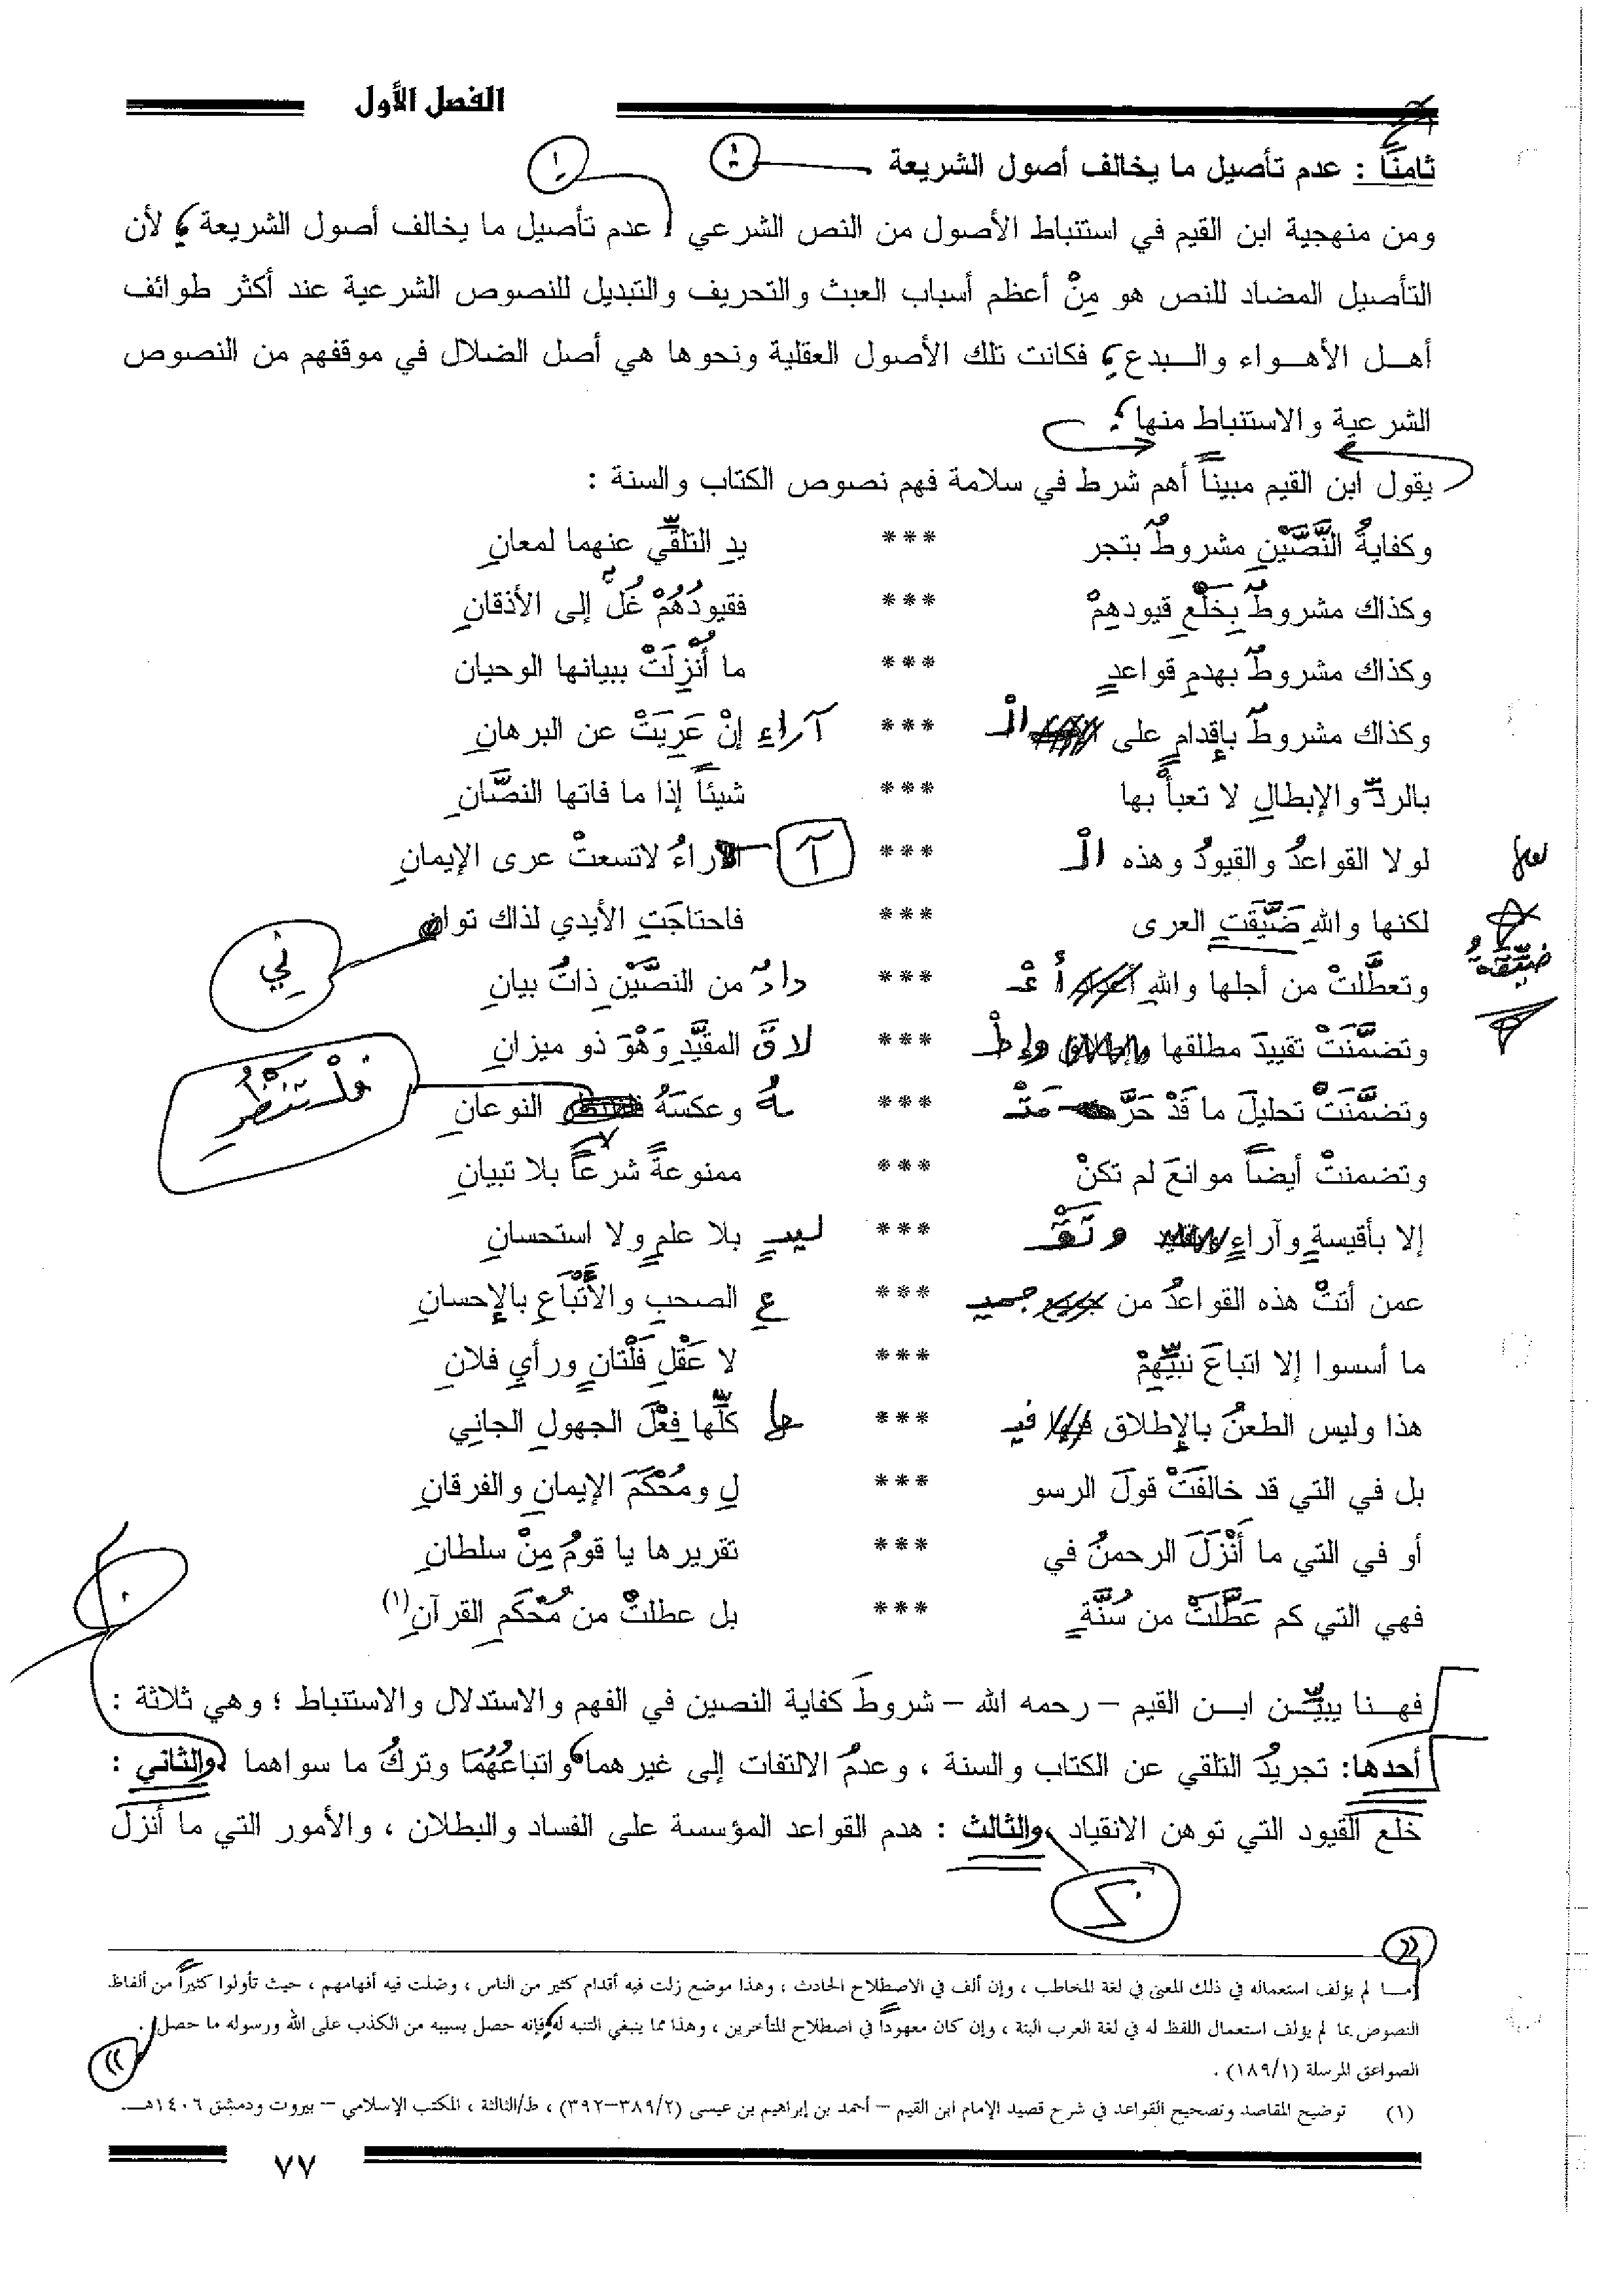 الفصل الأول
ثامناً : عدم تأصيل ما يخالف أصول الشريعة :
ومن منهجية ابن القيم في استنباط الأصول من النص الشرعي : عدم تأصيل ما يخالف أصول الشريعة ؛ لأن
التأصيل المضاد للنص هو مِنْ أعظم أسباب العبث والتحريف والتبديل للنصوص الشرعية عند أكثر طوائف
أهل الأهواء والبدع ؛ فكانت تلك الأصول العقلية ونحوها هي أصل الضلال في موقفهم من النصوص
الشرعية والاستنباط منها ؛
يقول ابن القيم مبيناً أهم شرط في سلامة فهم نصوص الكتاب والسنة :
وكفايةُ النَّصَّيْنِ مشروطٌ بتجر *** يدِ التلقِّي عنهما لمعانِ
وكذاك مشروطٌ بِخَلْعِ قيودهِمْ *** فقيودُهُمْ غُلٌّ إلى الأذقانِ
وكذاك مشروطٌ بهدمِ قواعدٍ *** ما أُنْزِلَتْ ببيانها الوحيان
وكذاك مشروطٌ بإقدامٍ على الْـ *** آراءِ إنْ عَرِيَتْ عن البرهانِ
بالردِّ والإبطالِ لا تعبأْ بها *** شيئاً إذا ما فاتها النصَّانِ
لولا القواعدُ والقيودُ وهذه الْـ *** آراءُ لاتسعتْ عرى الإيمانِ
لكنها واللهِ ضَيَّقتِ العرى *** فاحتاجَتِ الأيدي لذاك تواني
ضيِّقةُ
وتعطَّلتْ من أجلها واللهِ أعْـ *** دادٌ من النصَّيْنِ ذاتُ بيانِ
وتضمَّنَتْ تقييدَ مطلقها وإطْـ *** لاقَ المقيَّدِ وَهْوَ ذو ميزانِ
وتضمَّنَتْ تحليلَ ما قَدْ حَرَّمَتْـ *** ـهُ وعكسَهُ فلْتَنْظُرِ النوعانِ
وتضمنتْ أيضاً موانعَ لم تكنْ *** ممنوعةً شرعاً بلا تبيانِ
إلا بأقيسةٍ وآراءٍ وتَقْـ *** ـليدٍ بلا علمٍ ولا استحسانِ
عمن أتتْ هذه القواعدُ من جميـ *** ـعِ الصحبِ والأَتْبَاعِ بالإحسانِ
ما أسسوا إلا اتباعَ نبيِّهِمْ *** لا عَقْلِ فَلْتانٍ ورأيِ فلانِ
هذا وليس الطعنُ بالإطلاق فيـ *** ـها كلِّها فِعْلَ الجهولِ الجاني
بل في التي قد خالفَتْ قولَ الرسو *** لِ ومُحْكَمَ الإيمانِ والفرقانِ
أو في التي ما أَنْزَلَ الرحمنُ في *** تقريرها يا قومُ مِنْ سلطانِ
فهي التي كم عَطَّلَتْ من سُنَّةٍ *** بل عطلتْ من مُحْكَمِ القرآنِ (١)
فهنا يبيِّن ابن القيم – رحمه الله – شروطَ كفاية النصين في الفهم والاستدلال والاستنباط ؛ وهي ثلاثة :
أحدها: تجريدُ التلقي عن الكتاب والسنة ، وعدمُ الالتفات إلى غيرهما ، واتباعُهُمَا وتركُ ما سواهما . والثاني :
خلع القيود التي توهن الانقياد . والثالث : هدم القواعد المؤسسة على الفساد والبطلان ، والأمور التي ما أنزل
«ما لم يؤلف استعماله في ذلك المعنى في لغة المخاطب ، وإن ألف في الاصطلاح الحادث ، وهذا موضع زلت فيه أقدام كثير من الناس ، وضلت فيه أفهامهم ، حيث تأولوا كثيراً من ألفاظ
النصوص بما لم يؤلف استعمال اللفظ له في لغة العرب البتة ، وإن كان معهوداً في اصطلاح المتأخرين ، وهذا مما ينبغي التنبه له ؛ فإنه حصل بسببه من الكذب على الله ورسوله ما حصل» .
الصواعق المرسلة (١/١٨٩) .
(١) توضيح المقاصد وتصحيح القواعد في شرح قصيد الإمام ابن القيم – أحمد بن إبراهيم بن عيسى (٢/٣٨٩–٣٩٢) ، ط/الثالثة ، المكتب الإسلامي – بيروت ودمشق ١٤٠٦هـ.
٧٧